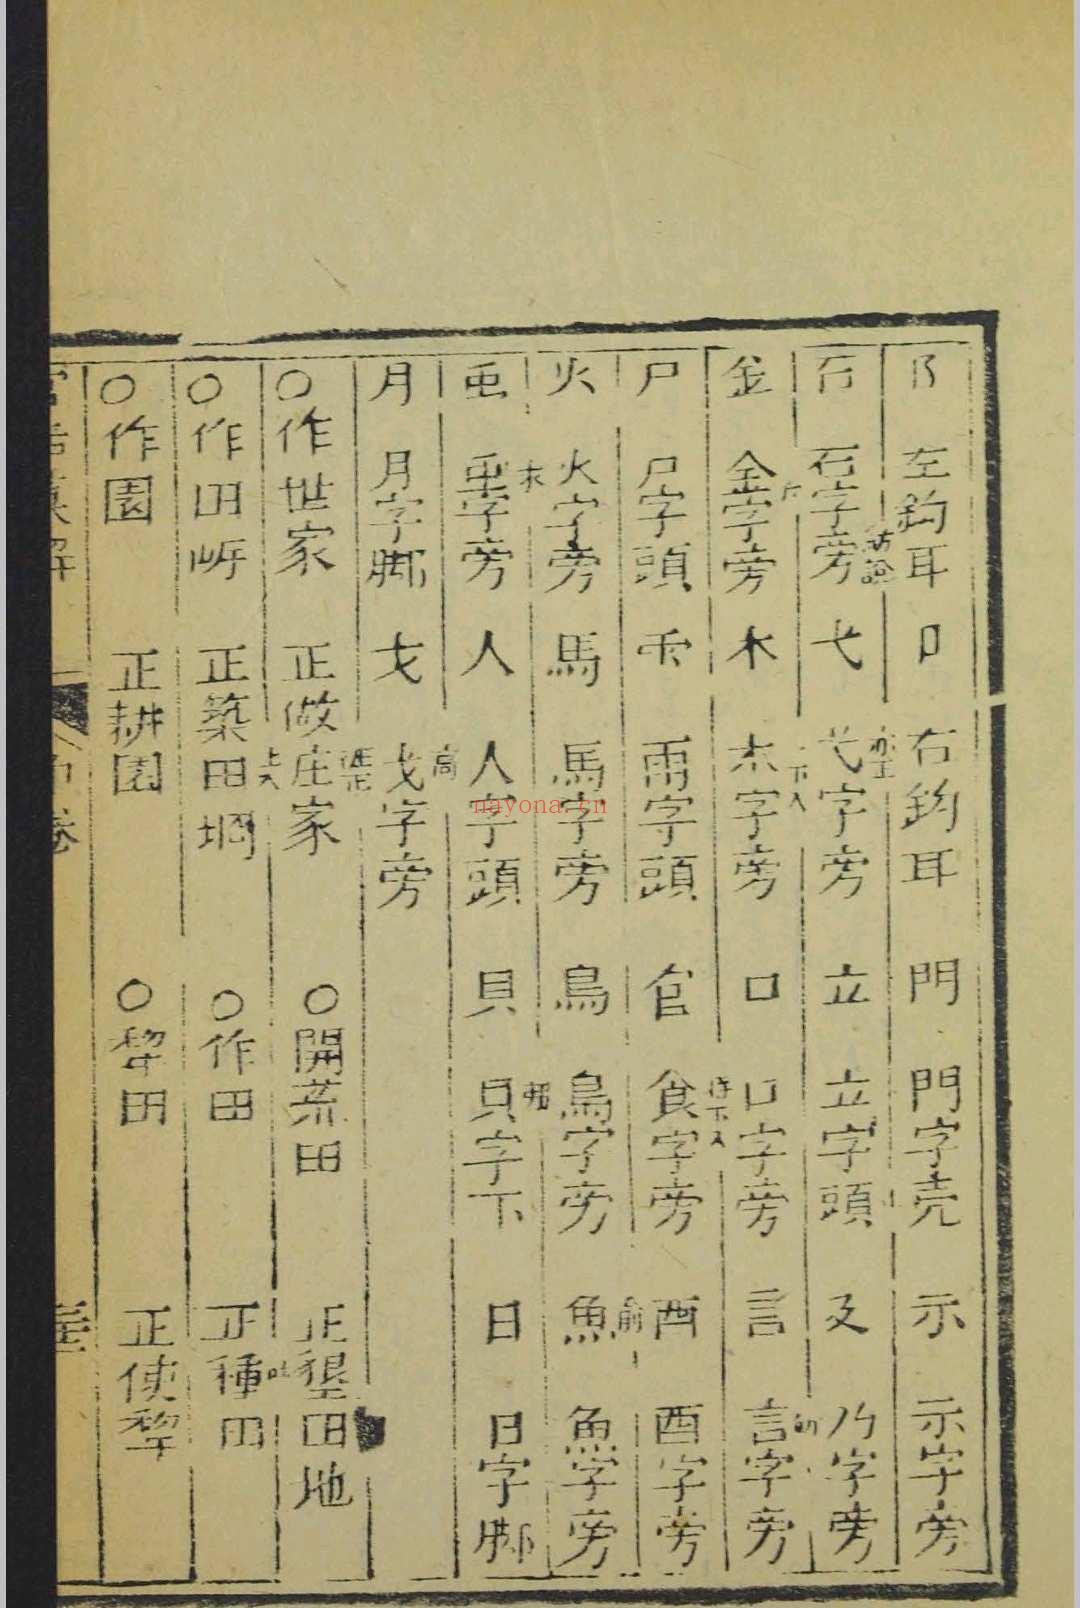 阝 左鈎耳 卩 右鈎耳 門 門字壳 示 示字旁
石 石字旁 弋 弋字旁 立 立字頭 及 乃字旁
金 金字旁 木 木字旁 口 口字旁 言 言字旁
尸 尸字頭 雨字頭 官 食字旁 酉 酉字旁
火 火字旁 馬 馬字旁 鳥 鳥字旁 魚 魚字旁
虫字旁 人 人字頭 貝 貝字下 日 日字脚
月 月字脚 戈 戈字旁
〇作世家 正做庄家 〇開荒田 正墾田地
〇作田 正築田埛 〇作田 正種田
〇作園 正耕園 〇犂田 正使犂
nayona.cn